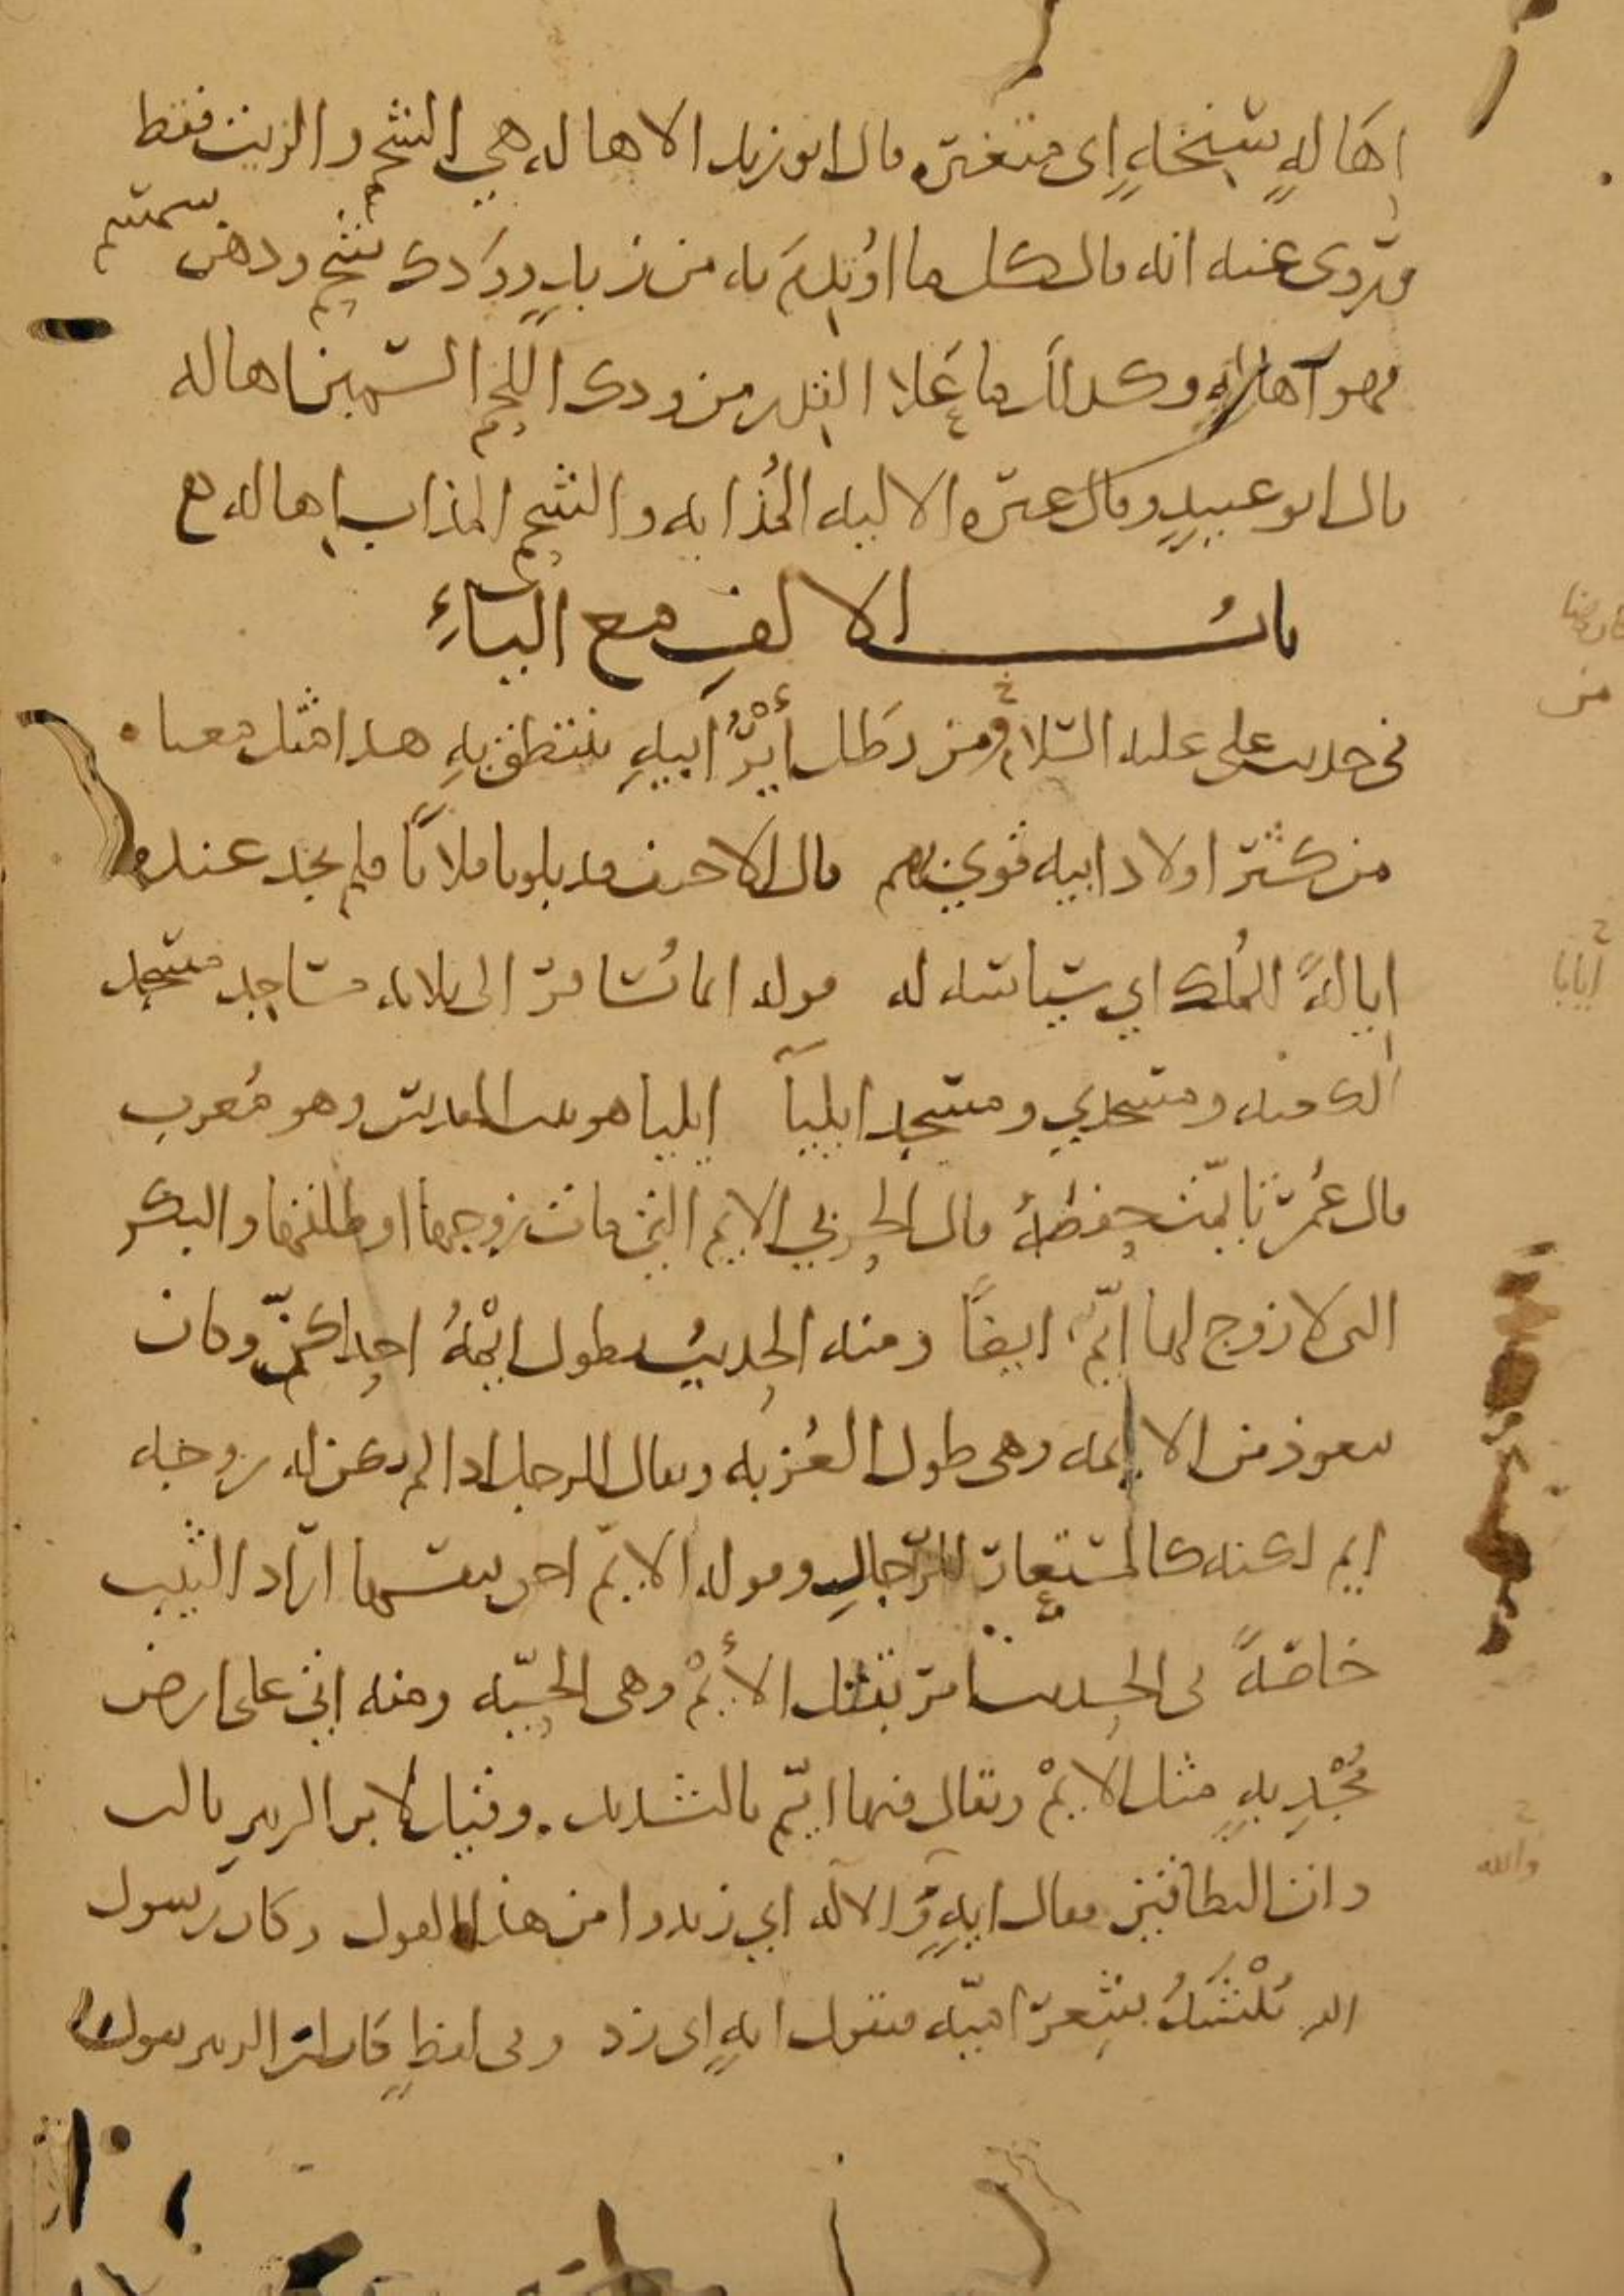 اِهَالهٍ سَنِخَهٍ اى متغيره قال ابو زيد الاهاله هي الشحم والزيت فقط
ورُوى عنه انه قال كل ما اوتُدِمَ به من زبدٍ وودَك شحم ودهن سمسم
فهو اهاله وكذلك ما عَلا القِدر من ودك اللحم السمين اهاله
قال ابو عبيدٍ وقال غيره الاليه المُذابه والشحم المذاب اِهاله
بابُ الالفِ مع الياءِ
في حديث علي عليه السلام ومن يَطُل أَيْرُ اَبيهِ ينتطق بهِ هذا مثل معناه
من كثر اولاد ابيه قوي بهم قال الاحنف قد بلونا فلانًا فلم نجد عنده
ايالةً للمُلك اي سياسه له قوله انما يُسافر الى ثلاثه مساجد مسجد
الكعبه ومسجدي ومسجد ايليآ ايليا هو بيت المقدس وهو مُعرب
قال عُمر تايمت حفصةُ قال الحربي الايم التي مات زوجها او طلقها والبكر
التى لا زوج لها ايّم ايضًا ومنه الحديث يطول ايْمةُ احداكنّ وكان
يتعوذ من الايمه وهى طول العُزبه ويقال للرجل اذا لم يكن له زوجه
ايم لكنه كالمستعار للرّجالِ وقوله الايّم احق بنفسها اراد الثيب
خاصّةً في الحديث امر بقتل الأيْم وهى الحيّه ومنه اتى على ارض
مُجْدِبهٍ مثل الايْم ويقال فيها ايّم بالتشديد وقيل لابن الزبير يا ابن
ذات النطاقين فقال ايهٍ والاله اي زيدوا من هذا القول وكان رسول
الله يُنْشَدُ شِعر اميّه فيقول ايهٍ اى زد وفى لفظٍ كان ابن الزبير يقول